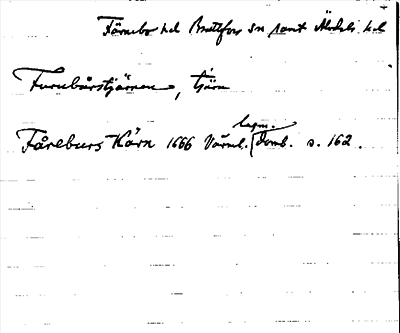 Färnebo hd Brattfors sn samt Älvdals hd
Furubårstjärnen, tjärn
Fåreburs Kärn 1666 Värml. lagm. domb. s. 162.